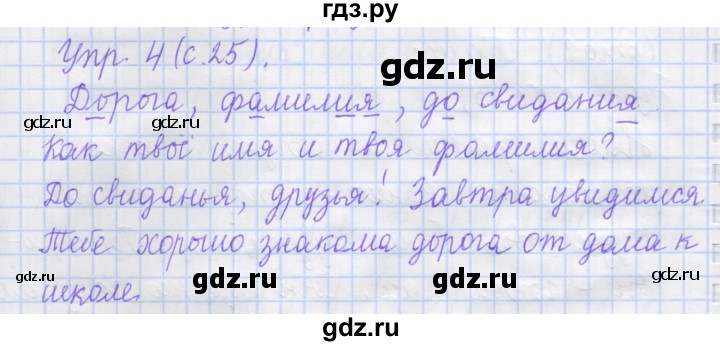 гдз.ру
Упр. 4 (с. 25).
gdz.ru
Дорога, фамилия, до свидания.
gdz.ru
gdz.ru
Как твоё имя и твоя фамилия?
До свиданья, друзья! Завтра увидимся
Тебе хорошо знакома дорога от дома к
gdz.ru
gdz.ru
школе.
gdz.ru